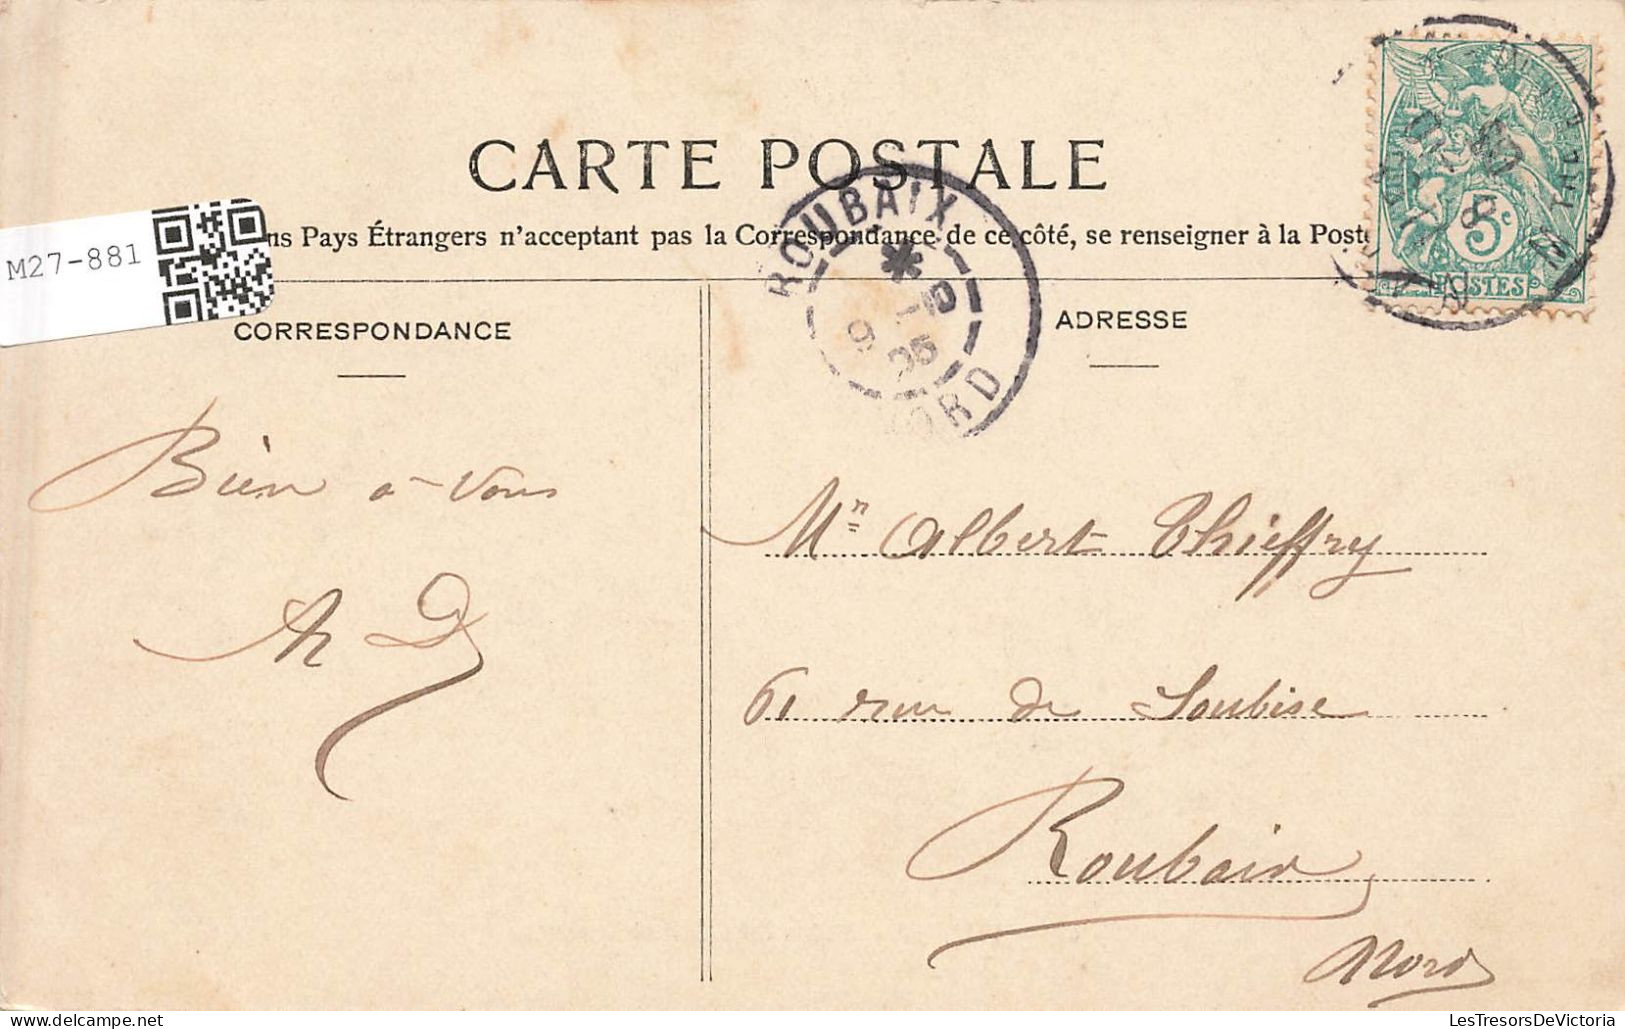 CARTE POSTALE
M27-881
ns Pays Étrangers n'acceptant pas la Correspondance de ce côté, se renseigner à la Poste
ROUBAIX
NORD
5c
POSTES
CORRESPONDANCE
ADRESSE
Bien à vous
Mr Albert Thieffry
61 rue de Soubise
Roubaix
Nord
LesTresorsDeVictoria.com